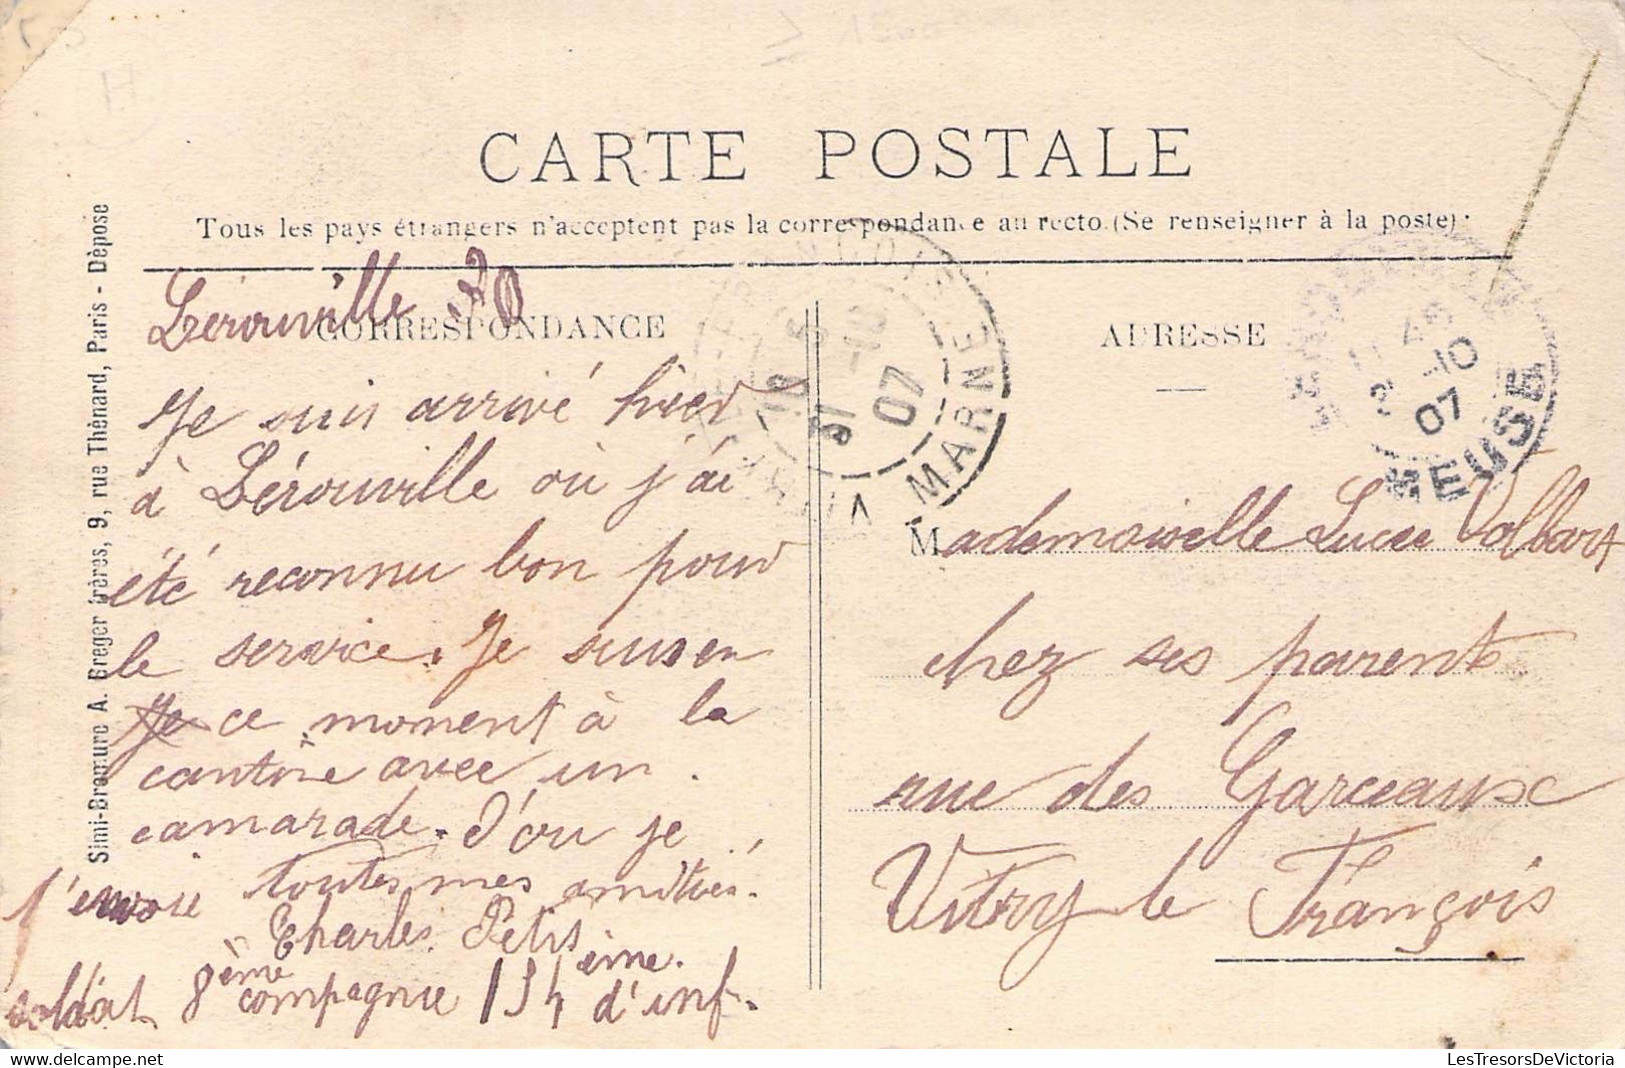 CARTE POSTALE
Tous les pays étrangers n'acceptent pas la correspondance au recto (Se renseigner à la poste)
Simi-Bromure A. Breger frères, 9, rue Thénard, Paris - Déposé
CORRESPONDANCE
Lérouville 30
Je suis arrivé hier
à Lérouville où j'ai
été reconnu bon pour
le service. Je suis en
Je ce moment à la
cantine avec un
camarade. D'où je
t'envoie toutes mes amitiés.
Charles Petit
soldat 8ème compagnie 154ème d'inf.
MARNE
31 -10
07
ADRESSE
-10
07
MEUSE
Mademoiselle Lucie
chez ses parents
rue des Garceaux
Vitry le François
LesTresorsDeVictoria